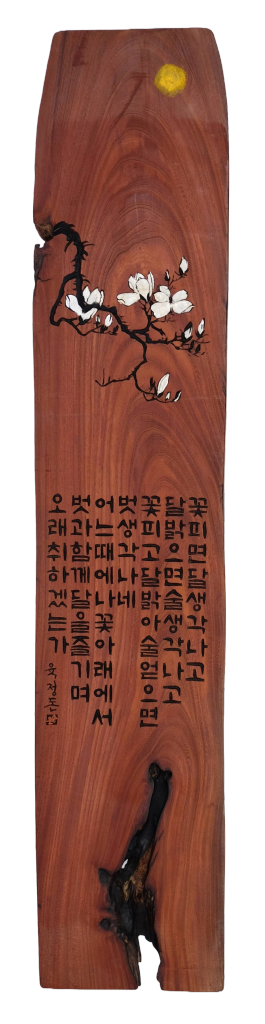 꽃피면달생각나고
달밝으면술생각나고
꽃피고달밝아술얻으면
벗생각나네
어느때에나꽃아래에서
벗과함께달을즐기며
오래취하겠는가